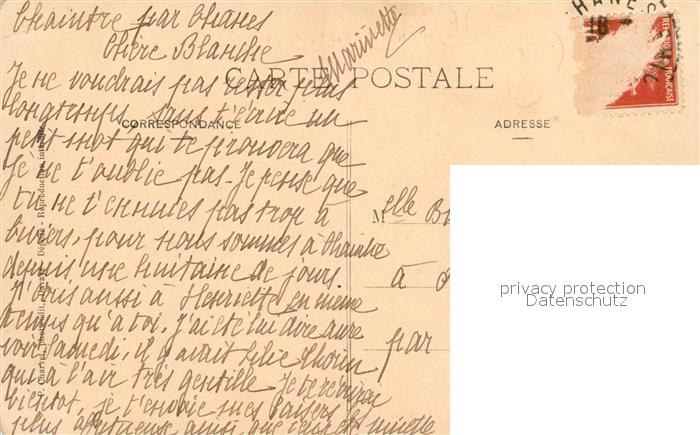 Chaintre par Chânes
Chère Blanche
Marinette
CARTE POSTALE
CORRESPONDANCE
ADRESSE
Je ne voudrais pas rester plus
longtemps sans t'écrire un
petit mot qui te prouvera que
Je ne t'oublie pas. Je pense que
tu ne t'ennuies pas trop à
pour nous sommes à Chaintre
depuis une huitaine de jours.
J'écris aussi à Henriette en même
temps qu'à toi, j'ai été lui dire au re
voir samedi, il y avait
qui à l'air très gentille Je te
bientôt, je t'envoie mes baisers
plus affectueux ainsi que ceux de minette
Melle
à
par
REPUBLIQUE FRANÇAISE
privacy protection
Datenschutz